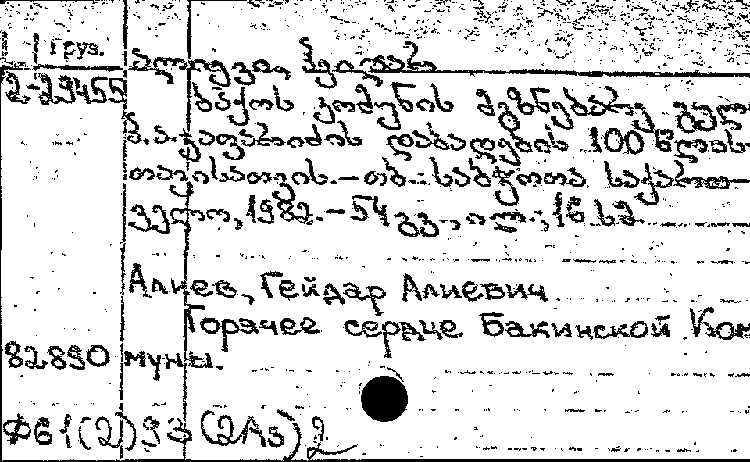 груз.
ალიევი, ჰეიდარ
2-29455 ბაქოს კომუნის მგზნებარე გული
პ.ა.ჯაფარიძის დაბადების 100 წლის-
თავისათვის.-თბ.: საბჭოთა საქართ-
ველო, 1982.-54 გვ., ილ.; 16 სმ
Алиев, Гейдар Алиевич
Горячее сердце Бакинской Ком
82890 муны.
Ф61(2)93(2Аз)2